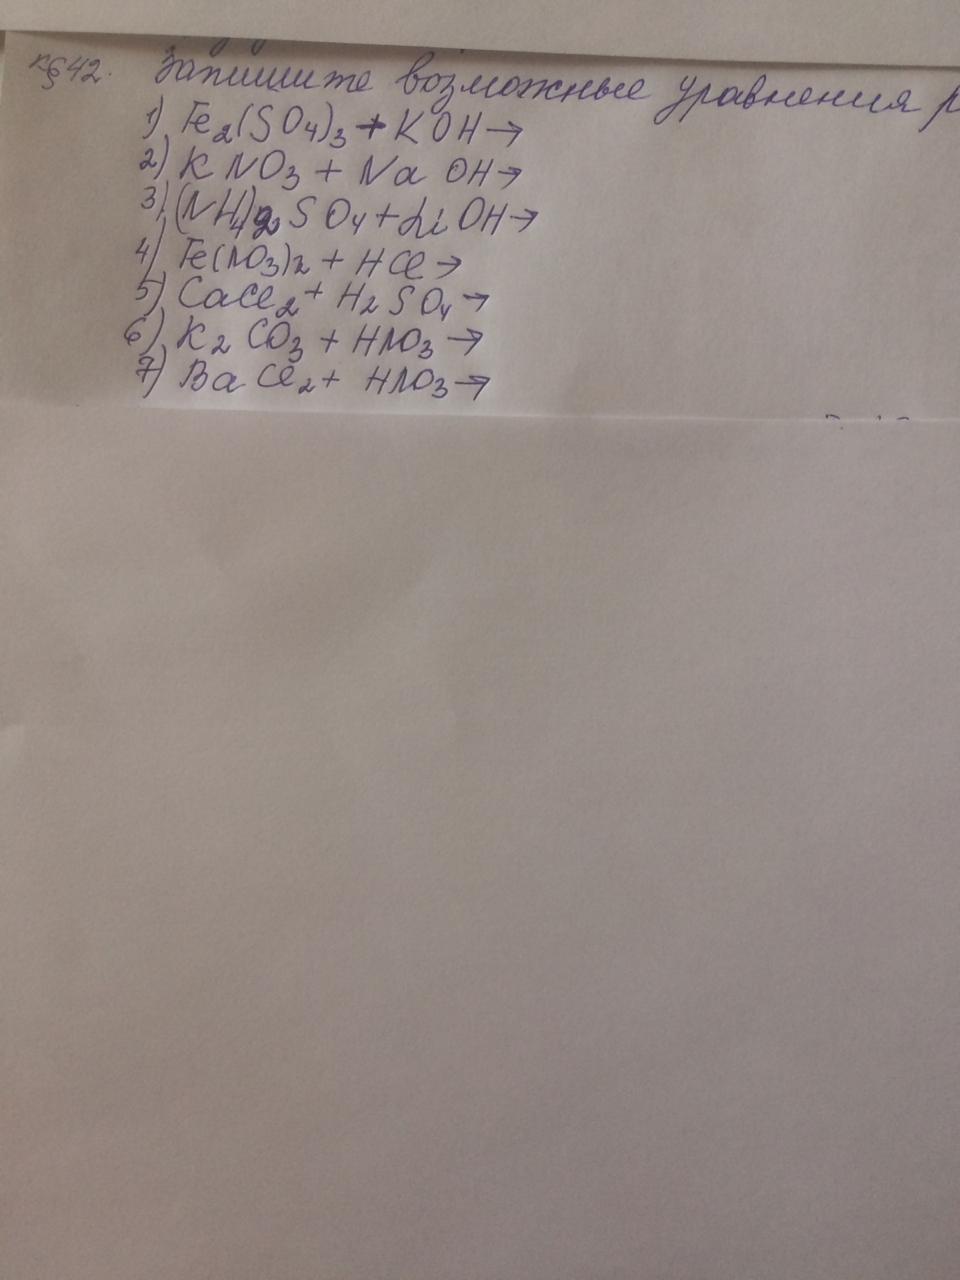 к§42. Запишите возможные уравнения р
1) Fe₂(SO₄)₃ + KOH →
2) KNO₃ + NaOH →
3) (NH₄)₂SO₄ + LiOH →
4) Fe(NO₃)₂ + HCl →
5) CaCl₂ + H₂SO₄ →
6) K₂CO₃ + HNO₃ →
7) BaCl₂ + HNO₃ →